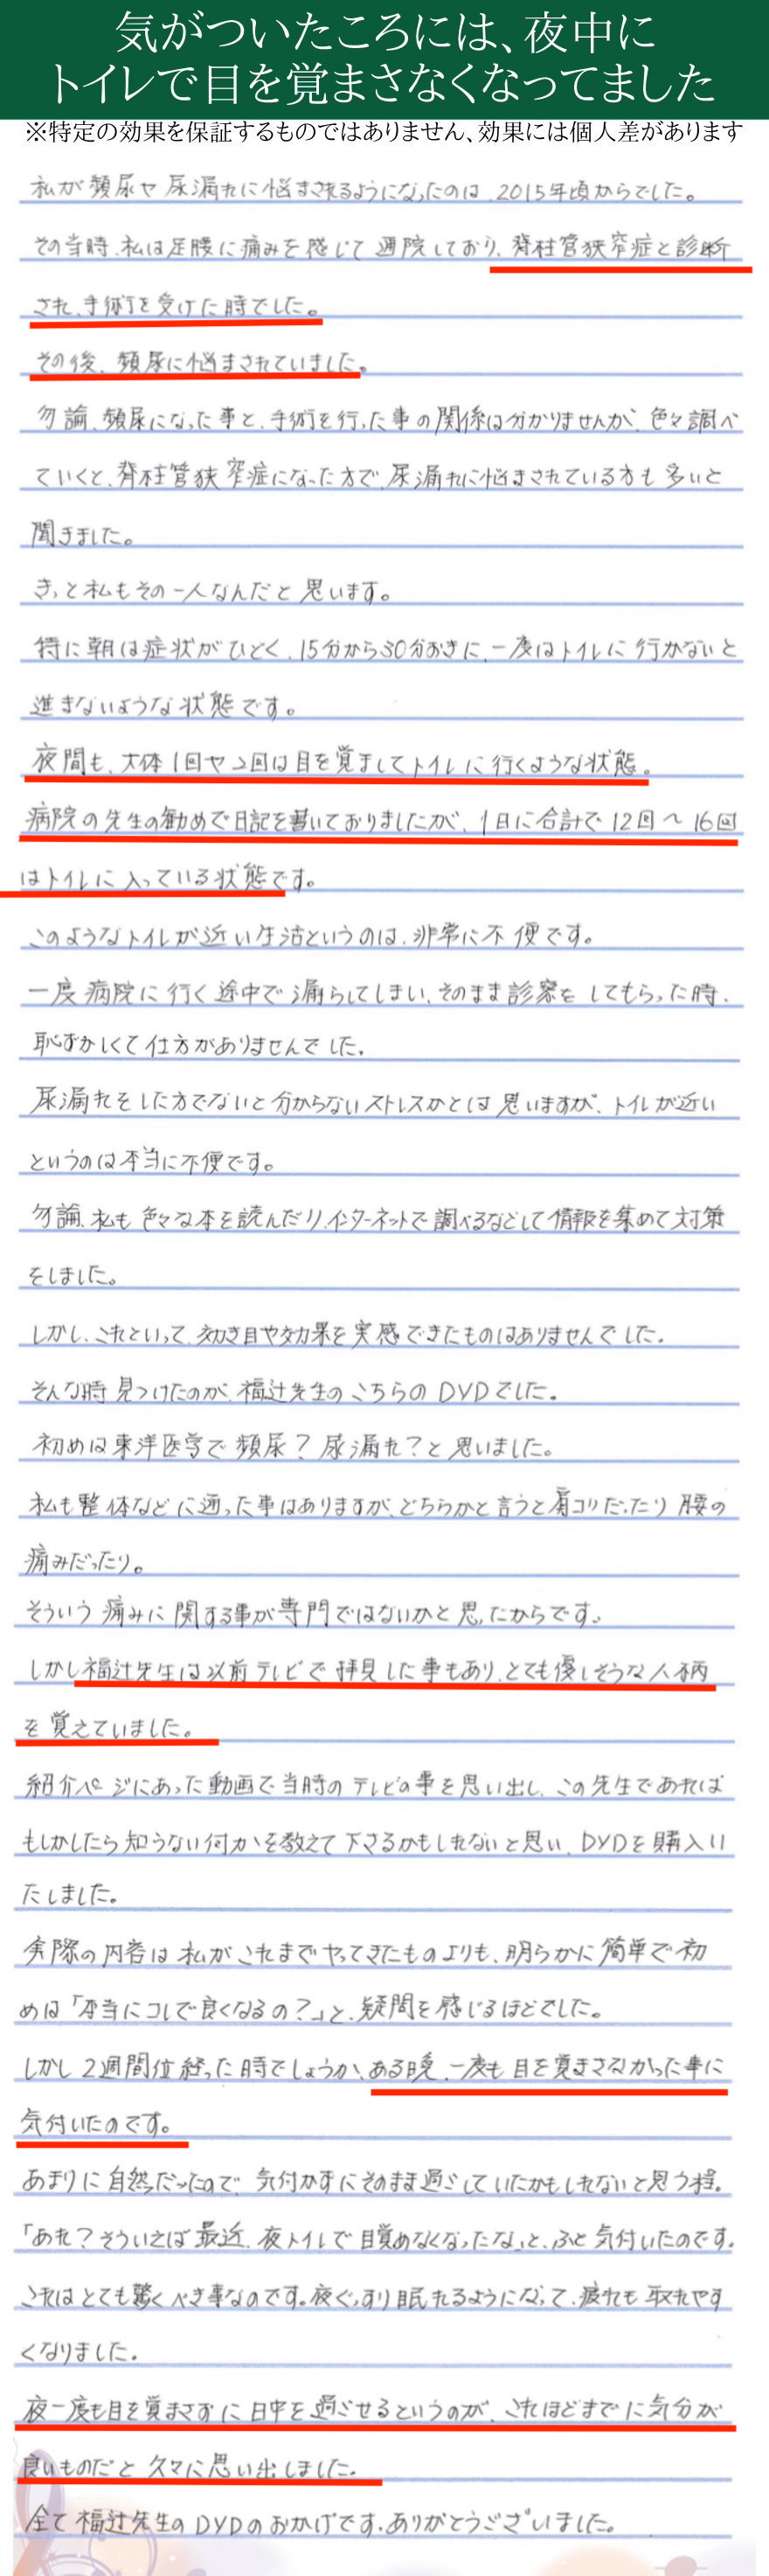 気がついたころには、夜中に
トイレで目を覚まさなくなってました
※特定の効果を保証するものではありません、効果には個人差があります
私が頻尿や尿漏れに悩まされるようになったのは、2015年頃からでした。
その当時、私は足腰に痛みを感じて通院しており、脊柱管狭窄症と診断
され、手術を受けた時でした。
その後、頻尿に悩まされていました。
勿論、頻尿になった事と、手術を行った事の関係は分かりませんが、色々調べ
ていくと、脊柱管狭窄症になった方で、尿漏れに悩まされている方も多いと
聞きました。
きっと私もその一人なんだと思います。
特に朝は症状がひどく、15分から30分おきに、一度はトイレに行かないと
進きないような状態です。
夜間も、大体1回や2回は目を覚ましてトイレに行くような状態。
病院の先生の勧めで日記を書いておりましたが、1日に合計で12回〜16回
はトイレに入っている状態です。
このようなトイレが近い生活というのは、非常に不便です。
一度病院に行く途中で漏らしてしまい、そのまま診察をしてもらった時、
恥ずかしくて仕方がありませんでした。
尿漏れをした方でないと分からないストレスかとは思いますが、トイレが近い
というのは本当に不便です。
勿論、私も色々な本を読んだり、インターネットで調べるなどして情報を集めて対策
をしました。
しかし、これといって、効き目や効果を実感できたものはありませんでした。
そんな時見つけたのが、福辻先生のこちらのDVDでした。
初めは東洋医学で頻尿？尿漏れ？と思いました。
私も整体などに通った事はありますが、どちらかと言うと肩コリだったり腰の
痛みだったり。
そういう痛みに関する事が専門ではないかと思ったからです。
しかし福辻先生は以前テレビで拝見した事もあり、とても優しそうな人柄
を覚えていました。
紹介ページにあった動画で当時のテレビの事を思い出し、この先生であれば
もしかしたら知らない何かを教えて下さるかもしれないと思い、DVDを購入い
たしました。
実際の内容は私がこれまでやってきたものよりも、明らかに簡単で初
めは「本当にコレで良くなるの？」と、疑問を感じるほどでした。
しかし2週間位経った時でしょうか、ある晩、一度も目を覚まさなかった事に
気付いたのです。
あまりに自然だったので、気付かずにそのまま過ごしていたかもしれないと思う程。
「あれ？そういえば最近、夜トイレで目覚めなくなったな」と、ふと気付いたのです。
これはとても驚くべき事なのです。夜ぐっすり眠れるようになって、疲れも取れやす
くなりました。
夜一度も目を覚まさずに日中を過ごせるというのが、これほどまでに気分が
良いものだと久々に思い出しました。
全て福辻先生のDVDのおかげです。ありがとうございました。